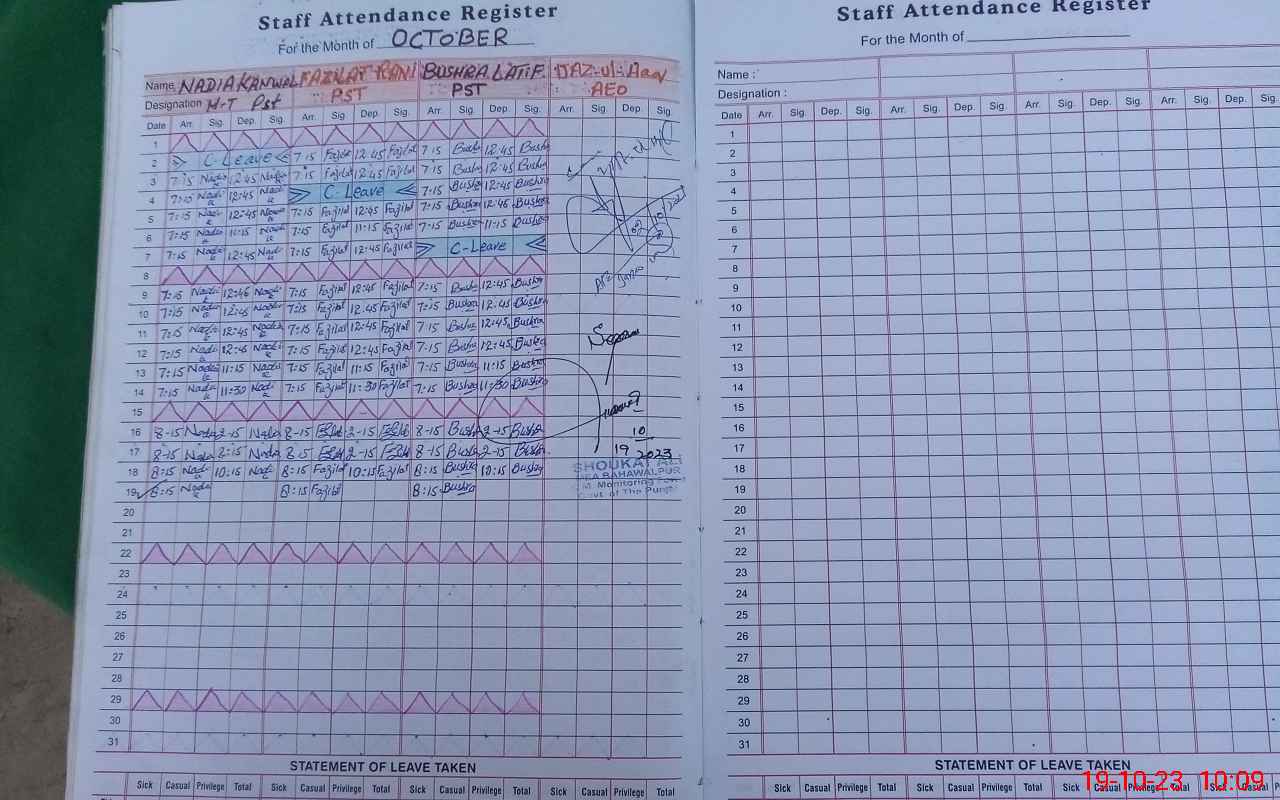 Staff Attendance Register
For the Month of OCTOBER
Name NADIA KANWAL FAZILAT RANI BUSHRA LATIF IJAZ-ul-Haq
Designation H-T Pst PST PST AEO
Date Arr. Sig. Dep. Sig. Arr. Sig. Dep. Sig. Arr. Sig. Dep. Sig. Arr. Sig. Dep. Sig.
1
2 C-Leave 7:15 Fazilat 12:45 Fazilat 7:15 Bushra 12:45 Bushra
3 7:15 Nadia 12:45 Nadia 7:15 Fazilat 12:45 Fazilat 7:15 Bushra 12:45 Bushra
4 7:15 Nadia 12:45 Nadia C-Leave 7:15 Bushra 12:45 Bushra
5 7:15 Nadia 12:45 Nadia 7:15 Fazilat 12:45 Fazilat 7:15 Bushra 12:45 Bushra
6 7:15 Nadia 11:15 Nadia 7:15 Fazilat 11:15 Fazilat 7:15 Bushra 11:15 Bushra
7 7:15 Nadia 12:45 Nadia 7:15 Fazilat 12:45 Fazilat C-Leave
8
9 7:15 Nadia 12:45 Nadia 7:15 Fazilat 12:45 Fazilat 7:15 Bushra 12:45 Bushra
10 7:15 Nadia 12:45 Nadia 7:15 Fazilat 12:45 Fazilat 7:15 Bushra 12:45 Bushra
11 7:15 Nadia 12:45 Nadia 7:15 Fazilat 12:45 Fazilat 7:15 Bushra 12:45 Bushra
12 7:15 Nadia 12:45 Nadia 7:15 Fazilat 12:45 Fazilat 7:15 Bushra 12:45 Bushra
13 7:15 Nadia 11:15 Nadia 7:15 Fazilat 11:15 Fazilat 7:15 Bushra 11:15 Bushra
14 7:15 Nadia 11:30 Nadia 7:15 Fazilat 11:30 Fazilat 7:15 Bushra 11:30 Bushra
15
16 8-15 Nadia 2-15 Nadia 8-15 Fazilat 2-15 Fazilat 8-15 Bushra 2-15 Bushra
17 8-15 Nadia 2:15 Nadia 8-15 Fazilat 2-15 Fazilat 8-15 Bushra 2-15 Bushra
18 8:15 Nadia 10:15 Nadia 8:15 Fazilat 10:15 Fazilat 8:15 Bushra 10:15 Bushra
19 8:15 Nadia 8:15 Fazilat 8:15 Bushra
20
21
22
23
24
25
26
27
28
29
30
31
10
19 2023
SHOUKAT ALI
MEA BAHAWALPUR
C.M. Monitoring Force
Govt. of The Punjab
STATEMENT OF LEAVE TAKEN
Sick Casual Privilege Total Sick Casual Privilege Total Sick Casual Privilege Total Sick Casual Privilege Total
Staff Attendance Register
For the Month of
Name :
Designation :
Date Arr. Sig. Dep. Sig. Arr. Sig. Dep. Sig. Arr. Sig. Dep. Sig.
1
2
3
4
5
6
7
8
9
10
11
12
13
14
15
16
17
18
19
20
21
22
23
24
25
26
27
28
29
30
31
STATEMENT OF LEAVE TAKEN
Sick Casual Privilege Total Sick Casual Privilege Total Sick Casual Privilege Total Sick
19-10-23 10:09